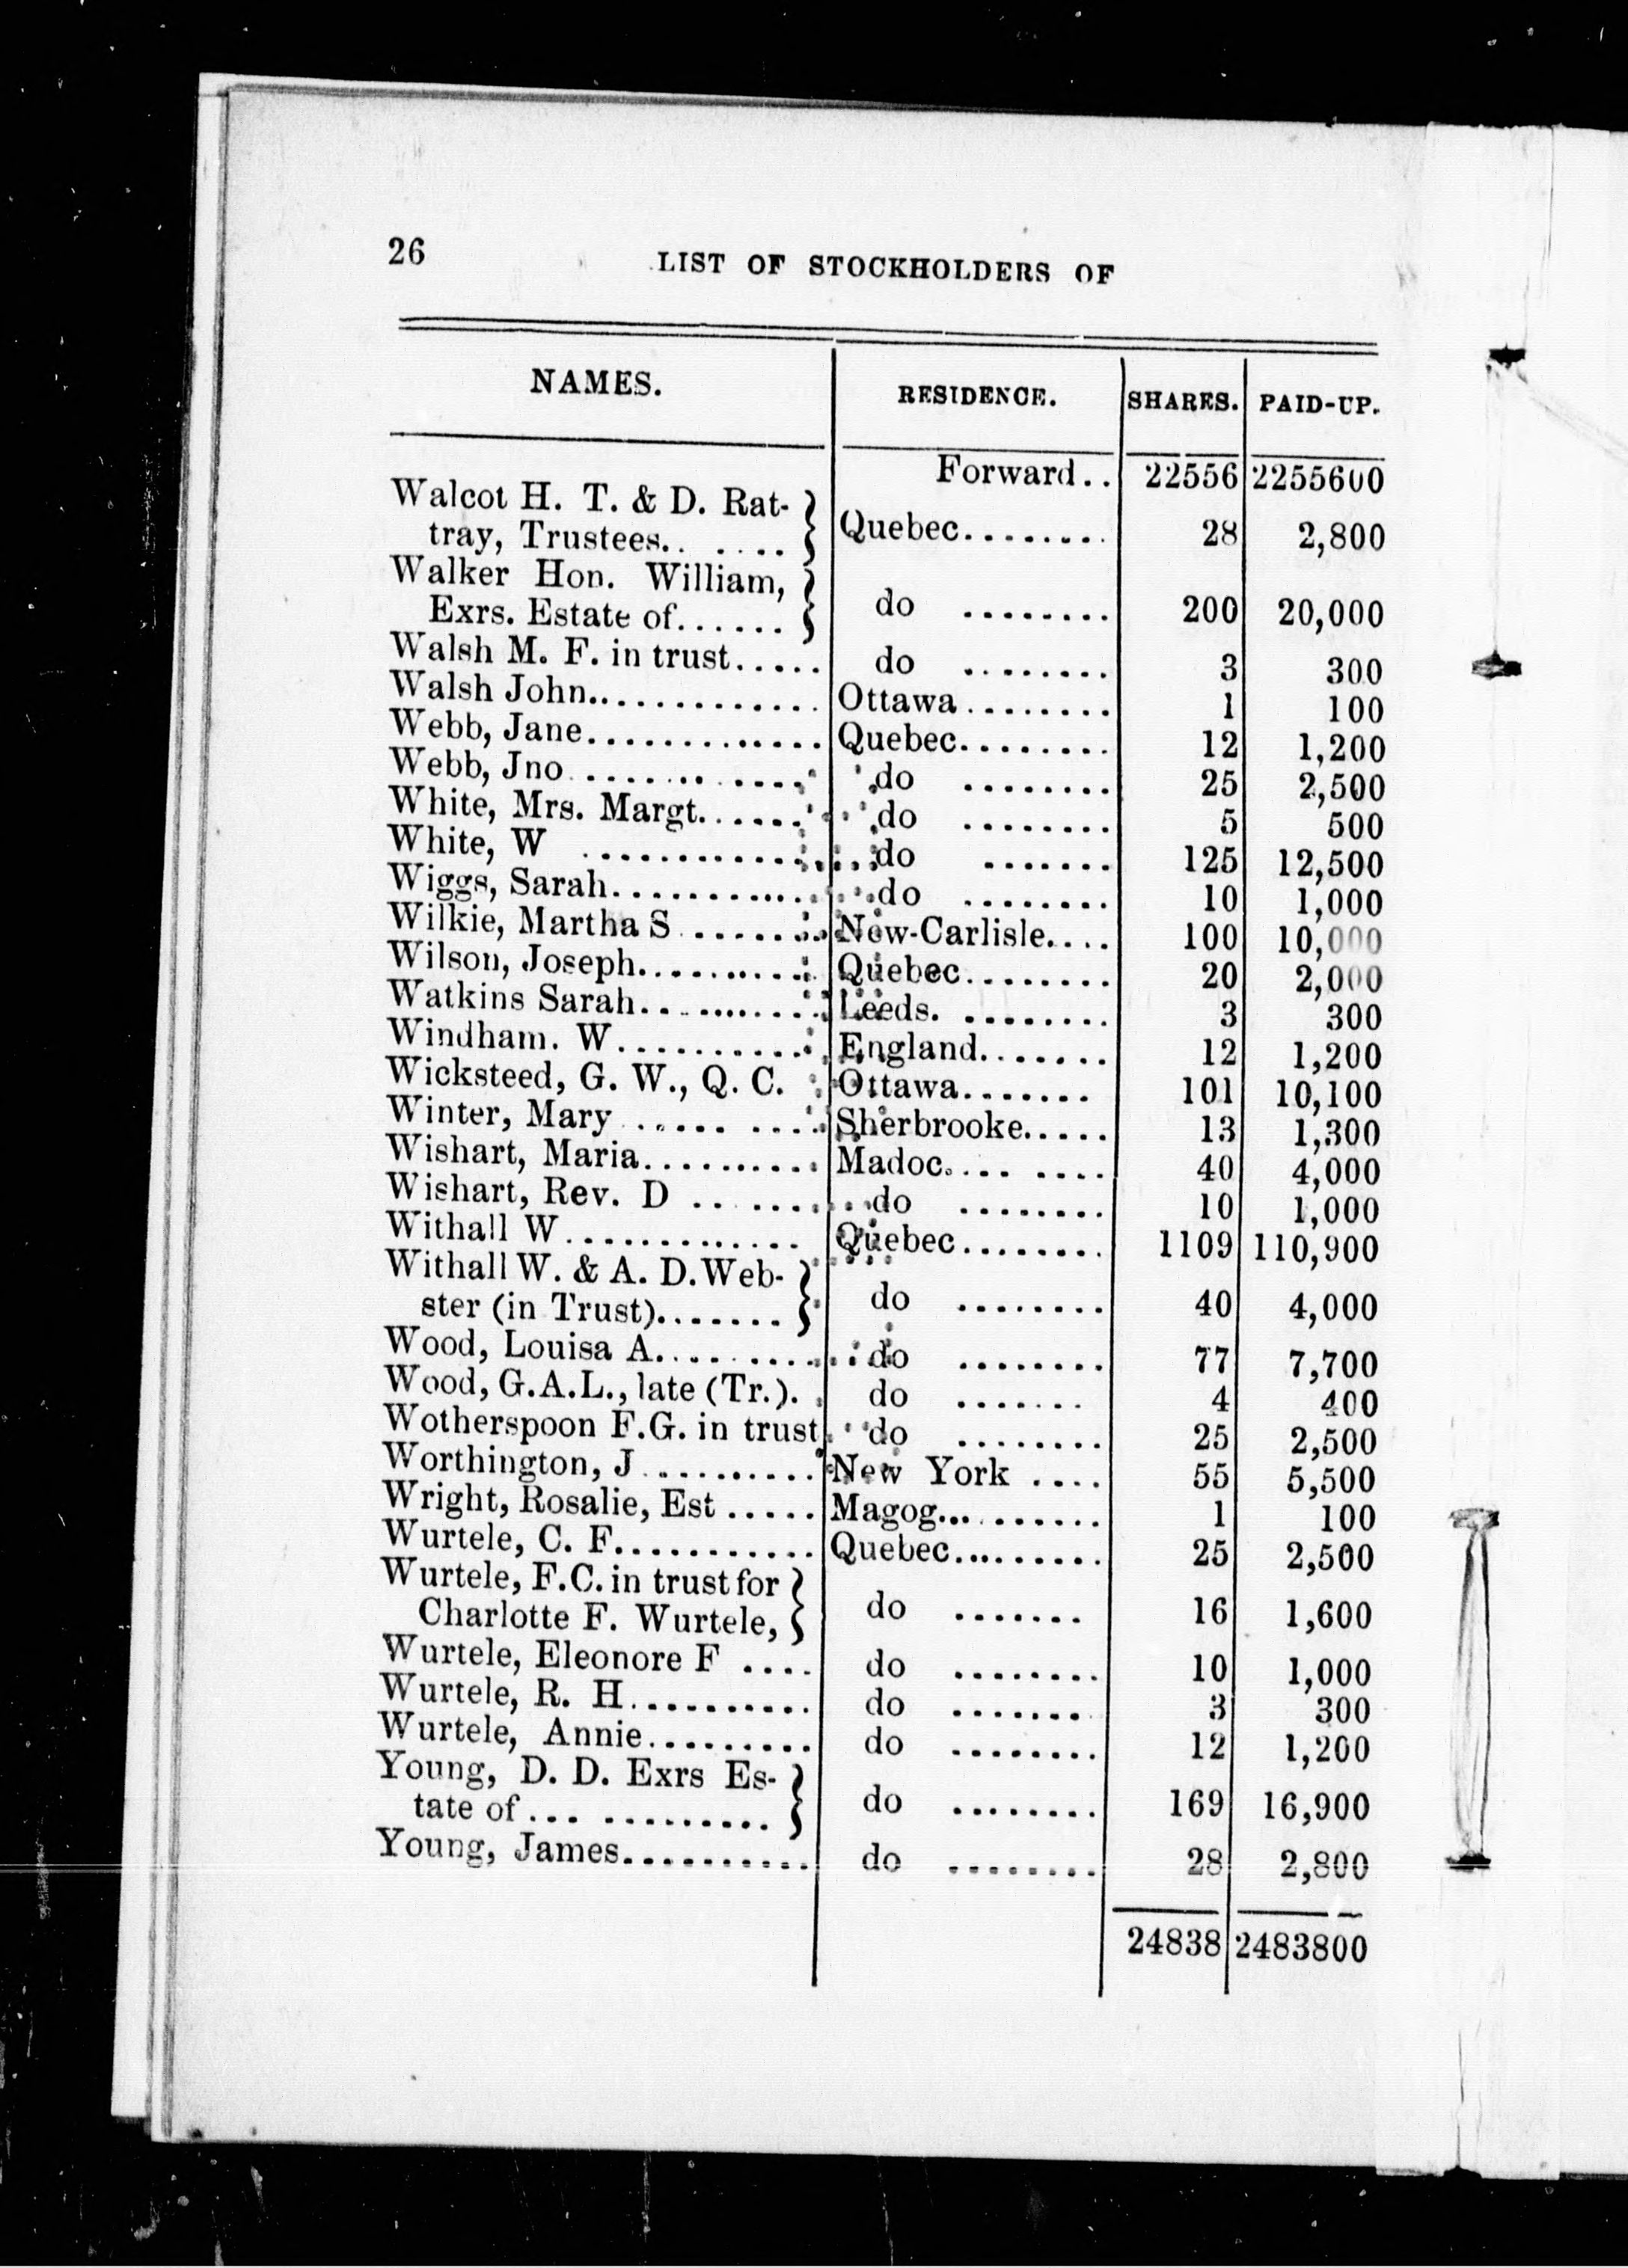 26 LIST OF STOCKHOLDERS OF
NAMES. RESIDENCE. SHARES. PAID-UP.
Forward.. 22556 2255600
Walcot H. T. & D. Rat-
tray, Trustees.. .... } Quebec........ 28 2,800
Walker Hon. William,
Exrs. Estate of...... } do ........ 200 20,000
Walsh M. F. in trust..... do ........ 3 300
Walsh John............. Ottawa........ 1 100
Webb, Jane............. Quebec........ 12 1,200
Webb, Jno............. do ........ 25 2,500
White, Mrs. Margt...... do ........ 5 500
White, W ............ do ....... 125 12,500
Wiggs, Sarah........... do ........ 10 1,000
Wilkie, Martha S ....... New-Carlisle.... 100 10,000
Wilson, Joseph.......... Quebec........ 20 2,000
Watkins Sarah........... Leeds. ........ 3 300
Windham. W........... England....... 12 1,200
Wicksteed, G. W., Q. C. Ottawa....... 101 10,100
Winter, Mary ...... .... Sherbrooke..... 13 1,300
Wishart, Maria.......... Madoc.... .... 40 4,000
Wishart, Rev. D .. .... do ........ 10 1,000
Withall W............. Quebec........ 1109 110,900
Withall W. & A. D. Web-
ster (in Trust)....... } do ........ 40 4,000
Wood, Louisa A......... do ........ 77 7,700
Wood, G.A.L., late (Tr.). do ....... 4 400
Wotherspoon F.G. in trust do ........ 25 2,500
Worthington, J .......... New York .... 55 5,500
Wright, Rosalie, Est ..... Magog.......... 1 100
Wurtele, C. F............ Quebec.......... 25 2,500
Wurtele, F.C. in trust for
Charlotte F. Wurtele, } do ....... 16 1,600
Wurtele, Eleonore F .... do ........ 10 1,000
Wurtele, R. H.......... do ....... 3 300
Wurtele, Annie......... do ........ 12 1,200
Young, D. D. Exrs Es-
tate of ... ......... } do ........ 169 16,900
Young, James.......... do ........ 28 2,800
24838 2483800